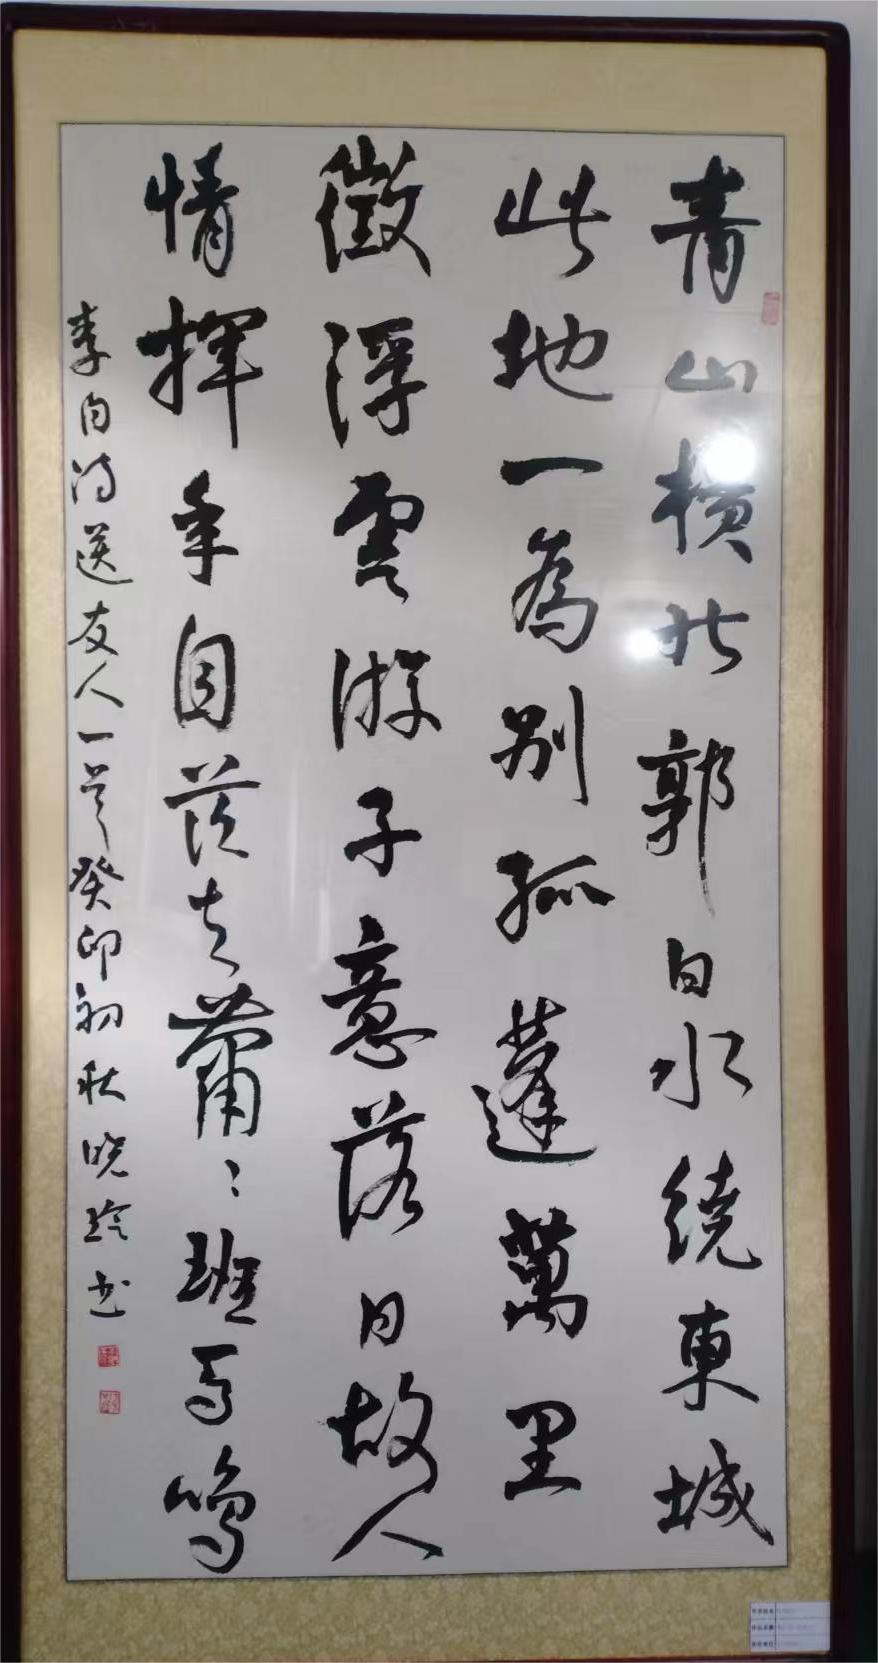 青山横北郭白水繞東城
此地一為别孤蓬萬里
徵浮雲游子意落日故人
情揮手自茲去蕭〻班馬鳴
李白诗送友人一首癸卯初秋晓玲书